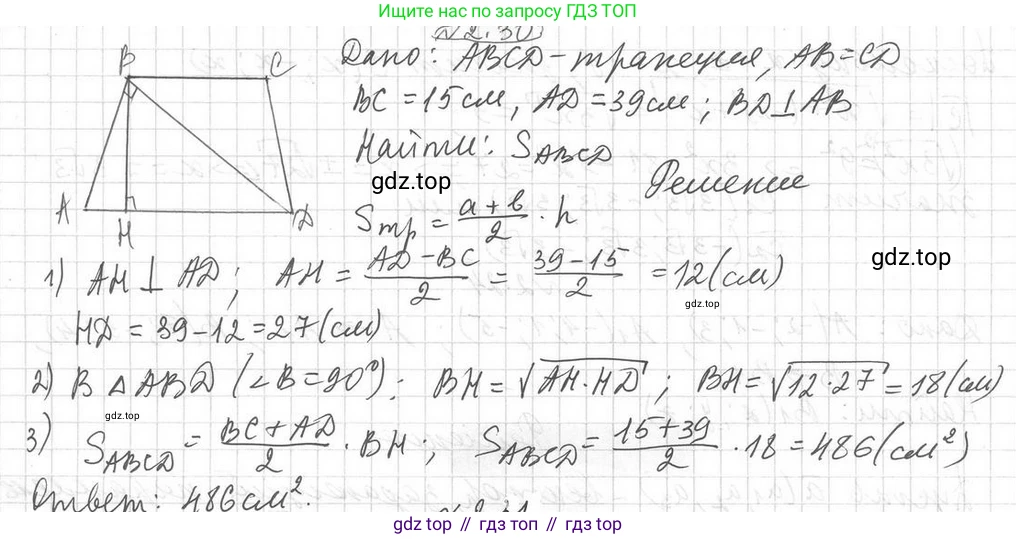 Ищите нас по запросу ГДЗ ТОП
№ 2.30
Дано: ABCD - трапеция, AB = CD
BC = 15 см, AD = 39 см; BD ⊥ AB
Найти: S_ABCD
gdz.top
Решение
S_тр = (a + b)/2 · h
B C
A H D
1) AH ⊥ AD; AH = (AD - BC)/2 = (39 - 15)/2 = 12 (см)
gdz.top
gdz.top
HD = 39 - 12 = 27 (см)
2) В △ ABD (∠B = 90°): BH = √(AH · HD); BH = √(12 · 27) = 18 (см)
gdz.top
3) S_ABCD = (BC + AD)/2 · BH; S_ABCD = (15 + 39)/2 · 18 = 486 (см²)
Ответ: 486 см².
gdz top // гдз топ // gdz top